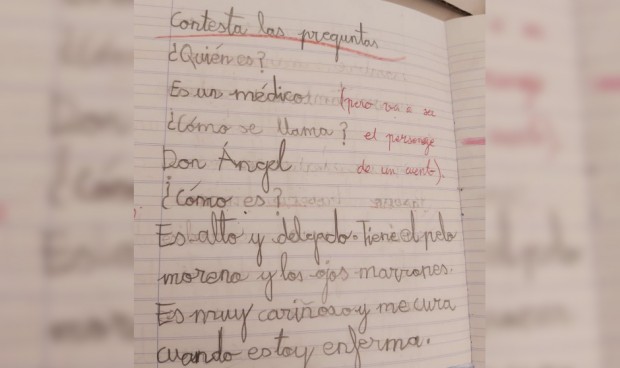 Contesta las preguntas
¿Quién es?
Es un médico (pero va a ser
¿Cómo se llama? el personaje
Don Ángel de un cuento).
¿Cómo es?
Es alto y delgado. Tiene el pelo
moreno y los ojos marrones.
Es muy cariñoso y me cura
cuando estoy enferma.